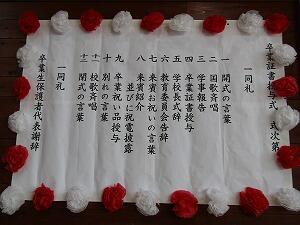 卒業証書授与式 式次第
一同礼
一 開式の言葉
二 国歌斉唱
三 学事報告
四 卒業証書授与
五 学校長式辞
六 教育委員会告辞
七 来賓お祝いの言葉
八 来賓紹介
並びに祝電披露
九 卒業祝い品授与
十 別れの言葉
十一 校歌斉唱
十二 閉式の言葉
一同礼
卒業生保護者代表謝辞